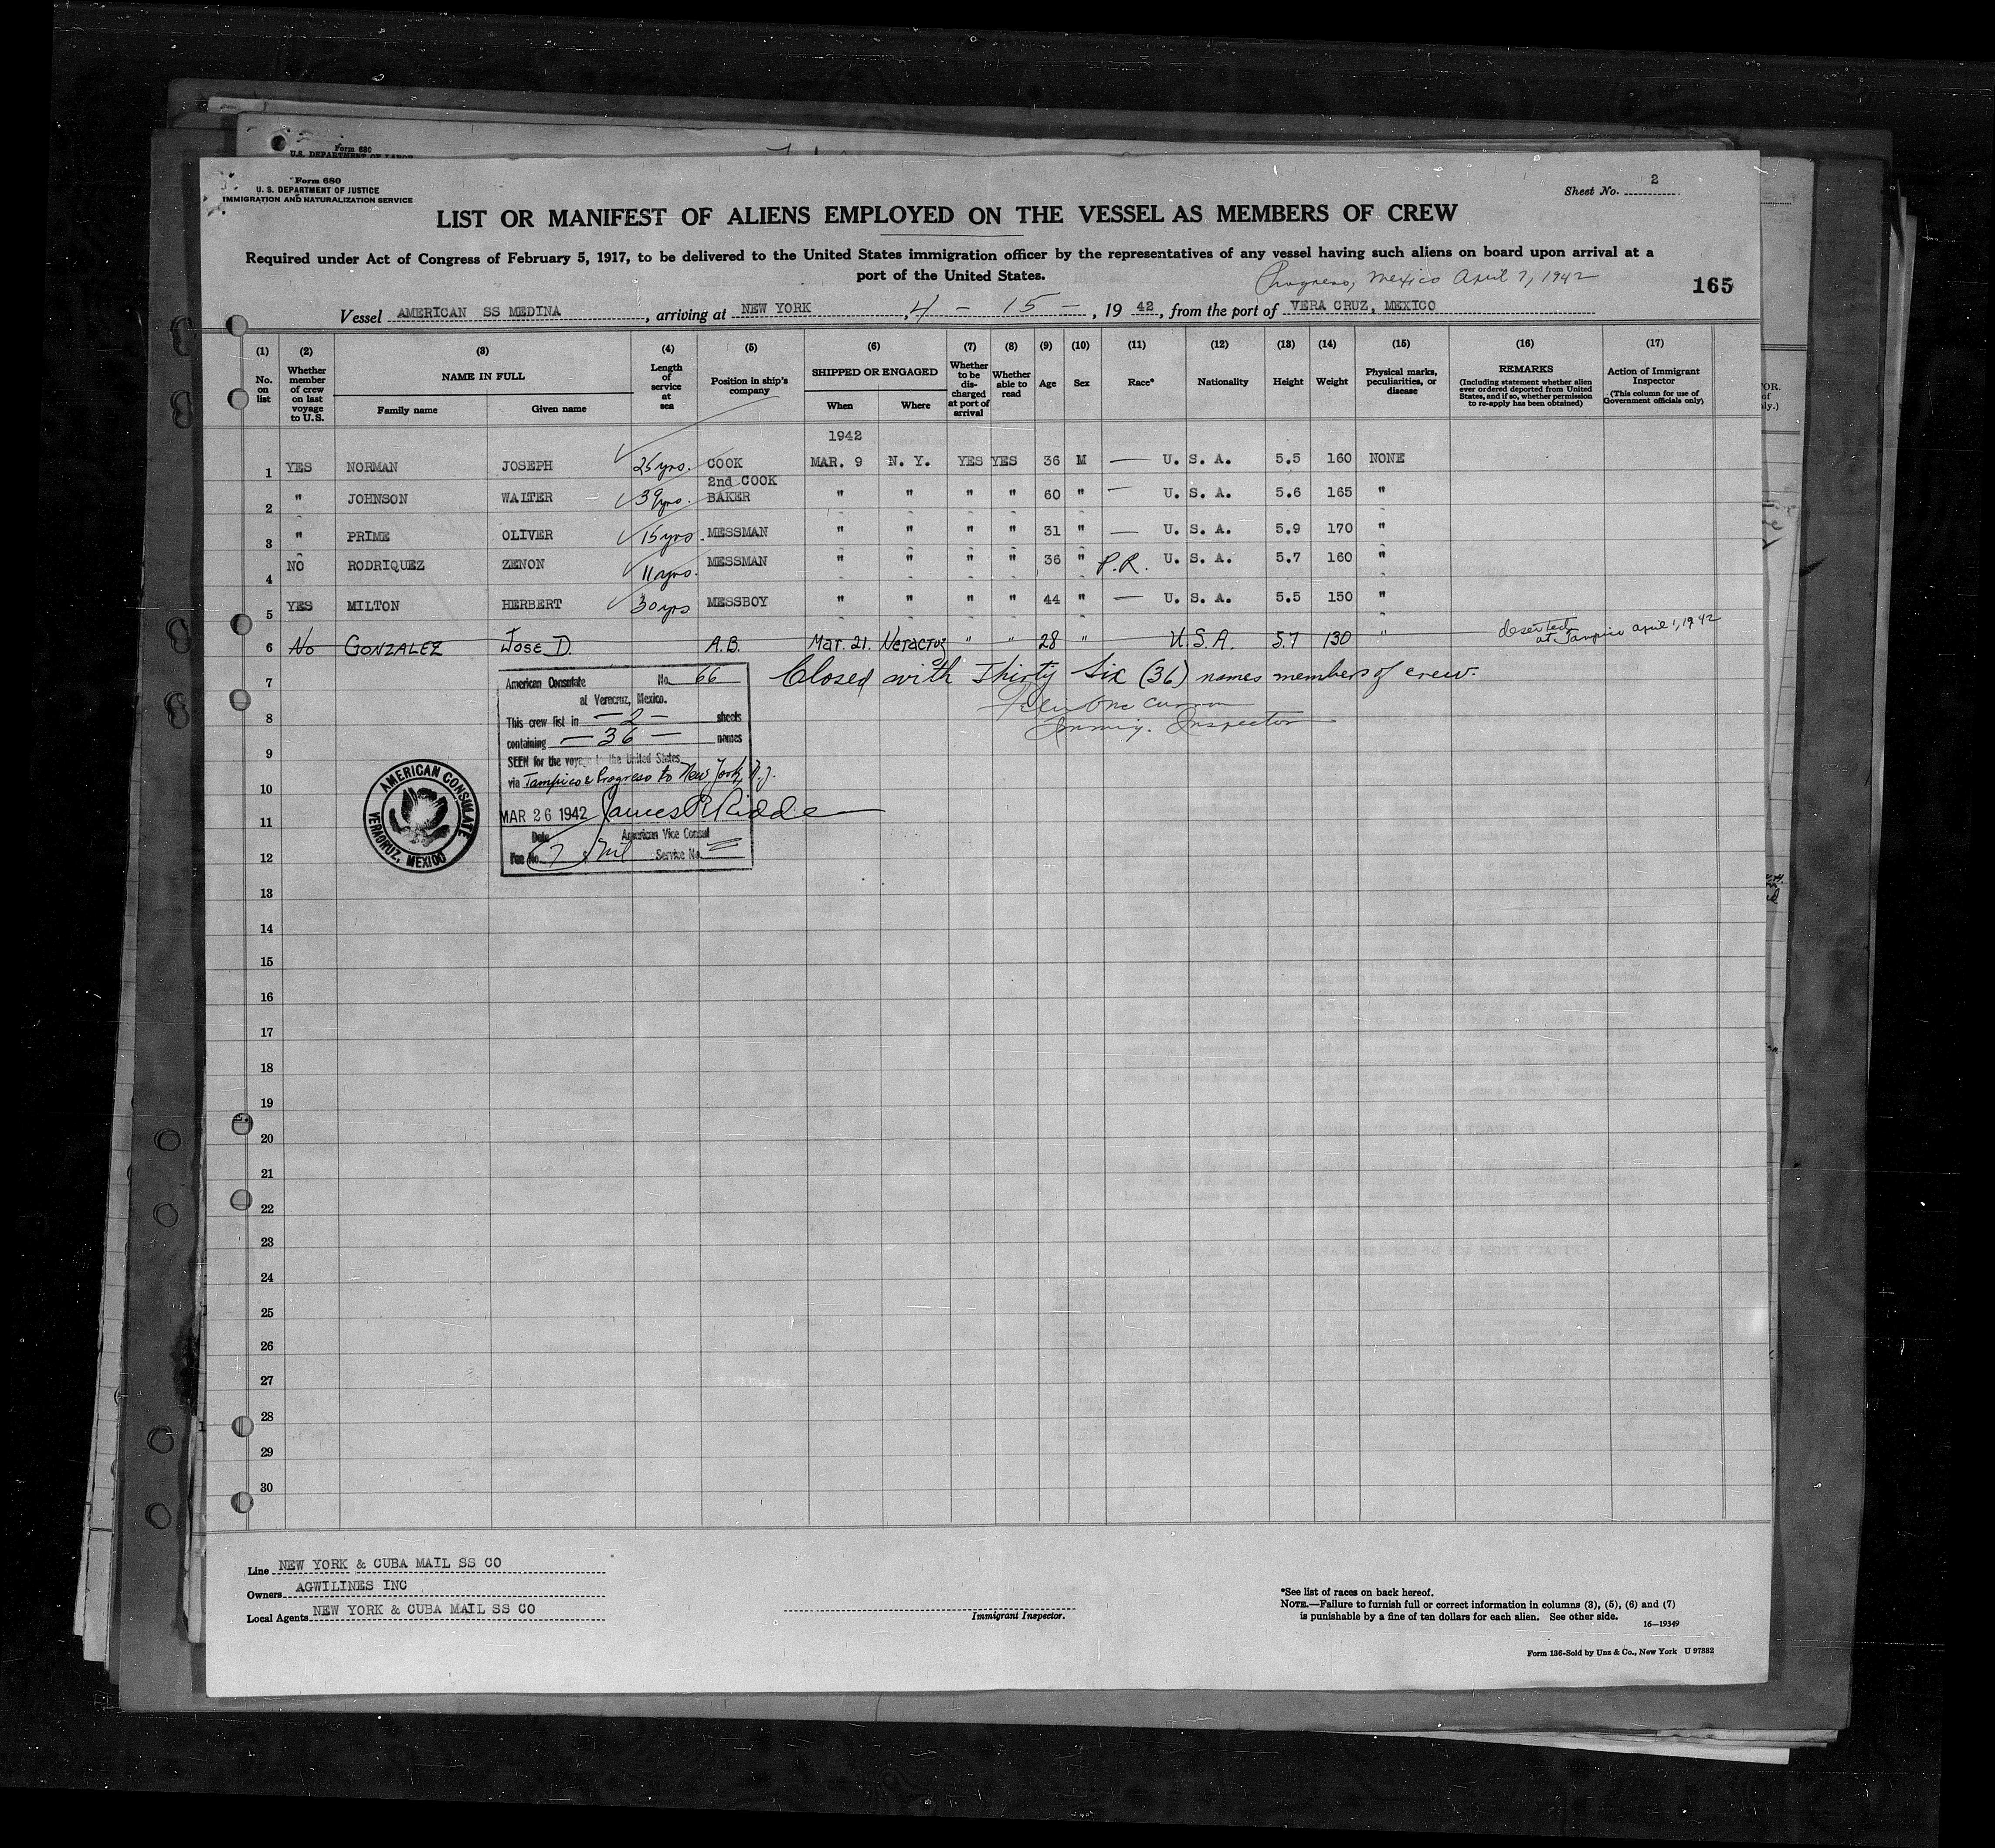 Form 680
U.S. DEPARTMENT OF LABOR
Form 680
U. S. DEPARTMENT OF JUSTICE
IMMIGRATION AND NATURALIZATION SERVICE
Sheet No. 2
LIST OR MANIFEST OF ALIENS EMPLOYED ON THE VESSEL AS MEMBERS OF CREW
Required under Act of Congress of February 5, 1917, to be delivered to the United States immigration officer by the representatives of any vessel having such aliens on board upon arrival at a
port of the United States.
Progreso, Mexico April 7, 1942
165
Vessel AMERICAN SS MEDINA, arriving at NEW YORK, 4 - 15 -, 19 42, from the port of VERA CRUZ, MEXICO
(1) (2) (3) (4) (5) (6) (7) (8) (9) (10) (11) (12) (13) (14) (15) (16) (17)
No. on list
Whether member of crew on last voyage to U.S.
NAME IN FULL
Family name Given name
Length of service at sea
Position in ship's company
SHIPPED OR ENGAGED
When Where
Whether to be discharged at port of arrival
Whether able to read
Age
Sex
Race*
Nationality
Height
Weight
Physical marks, peculiarities, or disease
REMARKS
(Including statement whether alien ever ordered deported from United States, and if so, whether permission to re-apply has been obtained)
Action of Immigrant Inspector
(This column for use of Government officials only)
1942
1 YES NORMAN JOSEPH 25 yrs. COOK MAR. 9 N. Y. YES YES 36 M — U. S. A. 5.5 160 NONE
2nd COOK
2 " JOHNSON WALTER 39 yrs. BAKER " " " " 60 " — U. S. A. 5.6 165 "
3 " PRIME OLIVER 15 yrs. MESSMAN " " " " 31 " — U. S. A. 5.9 170 "
4 NO RODRIQUEZ ZENON 11 yrs. MESSMAN " " " " 36 " P.R. U. S. A. 5.7 160 "
5 YES MILTON HERBERT 30 yrs MESSBOY " " " " 44 " — U. S. A. 5.5 150 "
6 No GONZALEZ JOSE D. A.B. Mar. 21. Veracruz " " 28 " U.S.A. 5.7 130 " deserted at Tampico April 1, 1942
7 Closed with Thirty Six (36) names members of crew.
Immig. Inspector
American Consulate No. 66
at Veracruz, Mexico.
This crew list in — 2 — sheets
containing — 36 — names
SEEN for the voyage to the United States
via Tampico & Progreso to New York, N.Y.
MAR 26 1942
Date American Vice Consul
Fee No. Service No.
AMERICAN CONSULATE
VERACRUZ, MEXICO
8
9
10
11
12
13
14
15
16
17
18
19
20
21
22
23
24
25
26
27
28
29
30
Line NEW YORK & CUBA MAIL SS CO
Owners AGWILINES INC
Local Agents NEW YORK & CUBA MAIL SS CO
Immigrant Inspector.
*See list of races on back hereof.
NOTE.—Failure to furnish full or correct information in columns (3), (5), (6) and (7)
is punishable by a fine of ten dollars for each alien. See other side.
16—19349
Form 136-Sold by Unz & Co., New York U 97882